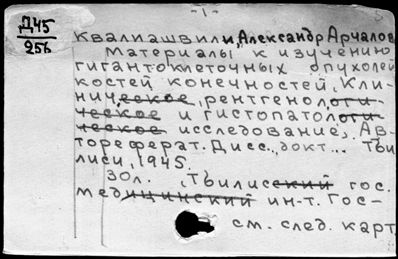 -1-
Д45
256
Квалиашвили, Александр Арчалов
Материалы к изучению
гигантоклеточных опухолей
костей конечностей. Кли-
ническое, рентгенологи-
ческое и гистопатологи-
ческое исследование. Ав-
тореферат. Дисс. докт... Тби-
лиси, 1945.
30л. Тбилисский гос.
медицинский ин-т. Гос-
см. след. карт